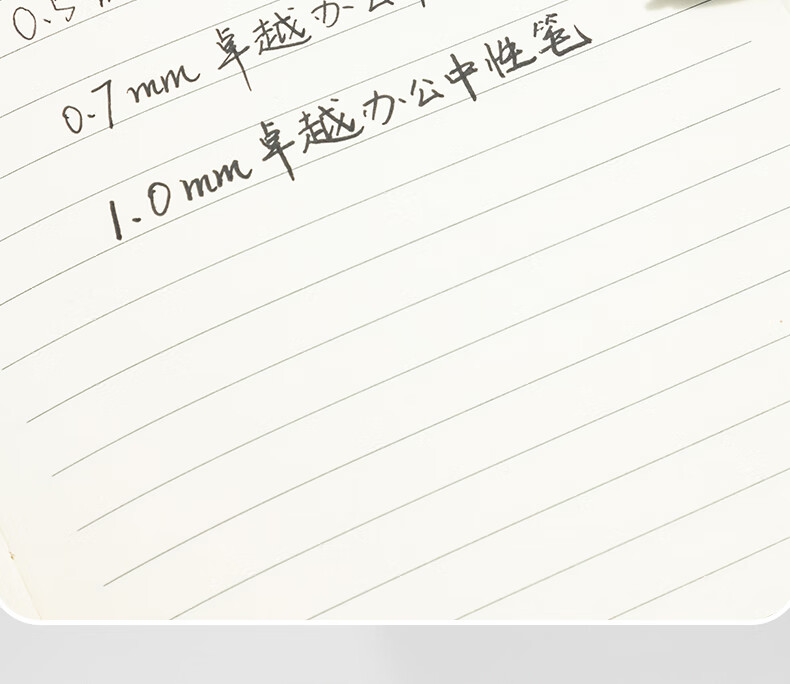 0.5
0.7mm 卓越办公
1.0mm 卓越办公中性笔